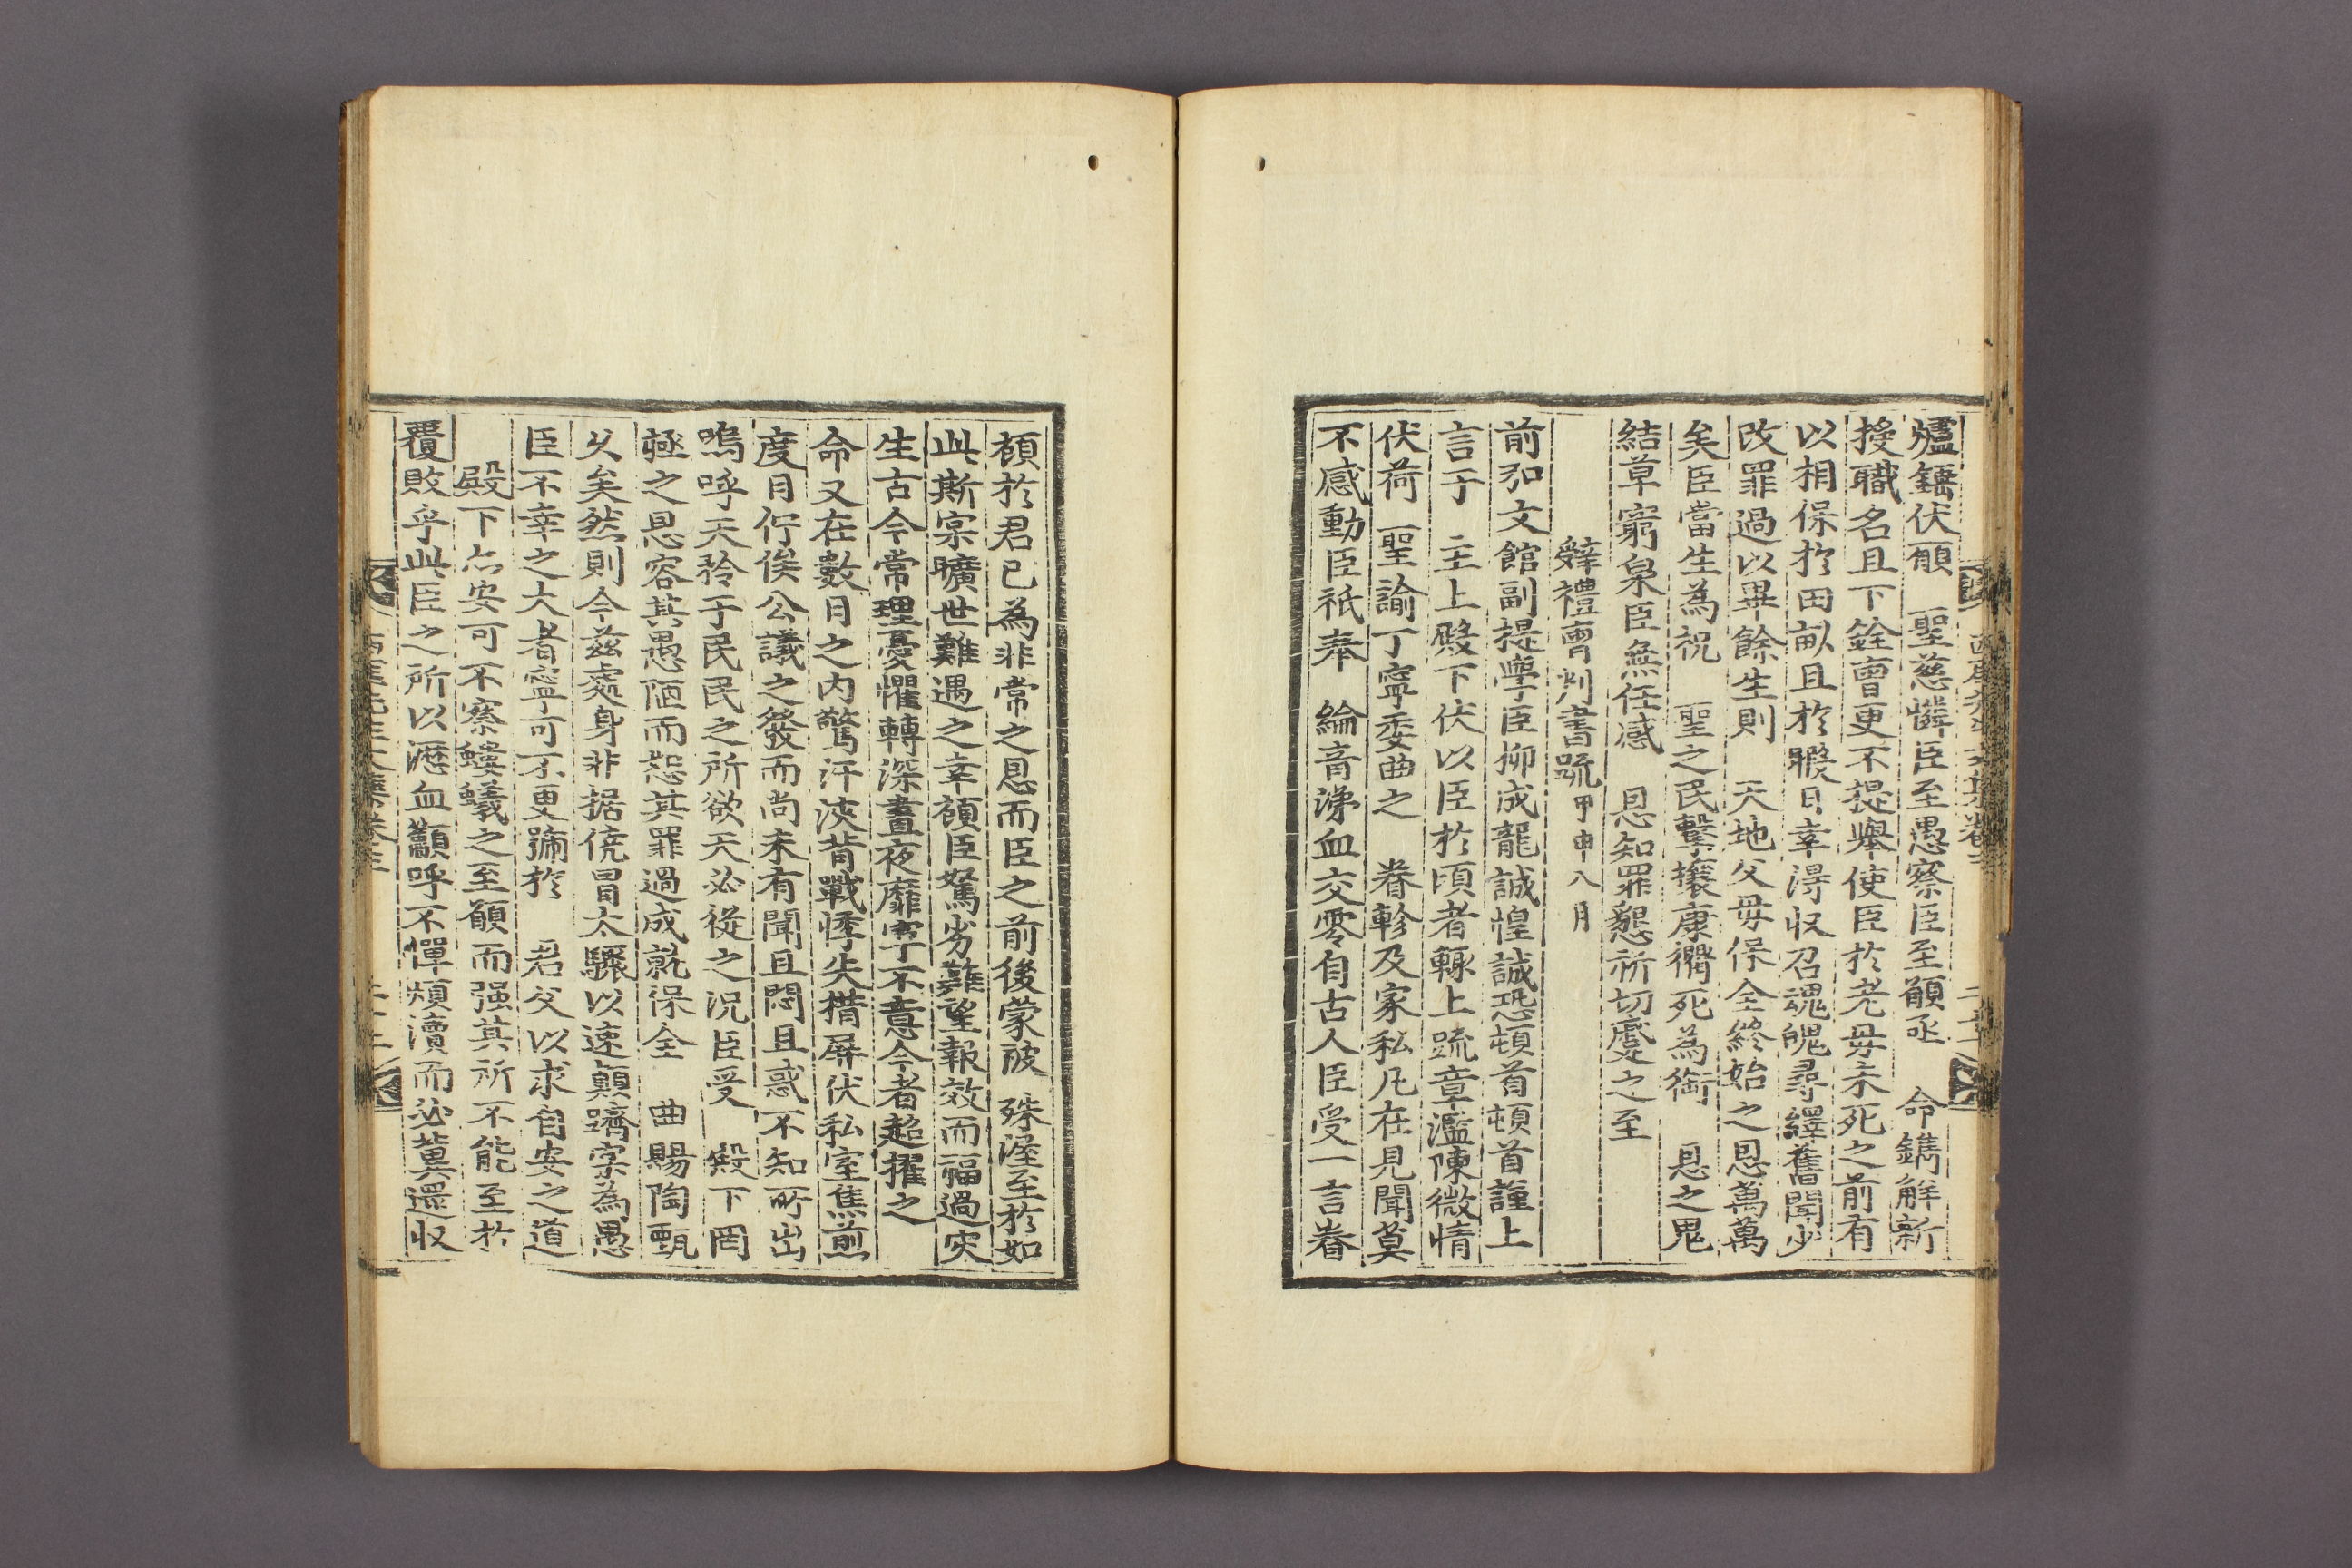 爐錘伏願 聖慈憐臣至愚察臣至願亟 命鐫解新
授職名且下銓曹更不提擧使臣於老母未死之前有
以相保於田畝且於暇日幸得收召魂魄尋繹舊聞少
改罪過以畢餘生則 天地父母保全終始之恩萬萬
矣臣當生爲祝 聖之民擊攘康衢死爲銜 恩之鬼
結草窮泉臣無任感 恩知罪懇祈切蹙之至
辭禮曹判書疏甲申八月
前弘文館副提學臣柳成龍誠惶誠恐頓首頓首謹上
言于 主上殿下伏以臣於頃者輒上疏章濫陳微情
伏荷 聖諭丁寧委曲之 眷軫及家私凡在見聞莫
不感動臣祇奉 綸音涕血交零自古人臣受一言眷
顧於君已爲非常之恩而臣之前後蒙被 殊渥至於如
此斯寔曠世難遇之幸顧臣駑劣蔑望報效而福過灾
生古今常理憂懼轉深晝夜靡寧不意今者超擢之
命又在數月之內驚汗浹背戰悸失措屛伏私室焦煎
度日佇俟公議之發而尙未有聞且悶且惑不知所出
嗚呼天矜于民民之所欲天必從之況臣受 殿下罔
極之恩容其愚陋而恕其罪過成就保全 曲賜陶甄
久矣然則今玆處身非據僥冒太驟以速顚隮寔爲愚
臣不幸之大者寧可不更號於 君父以求自安之道
殿下亦安可不察螻蟻之至願而强其所不能至於
覆敗乎此臣之所以瀝血籲呼不憚煩瀆而必冀還收
西厓先生文集卷三